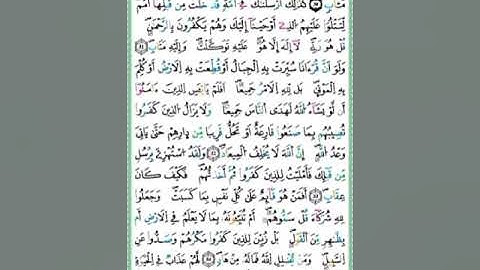 مَـَٔابٍ كَذَٰلِكَ أَرْسَلْنَٰكَ فِي أُمَّةٍ قَدْ خَلَتْ مِن قَبْلِهَا أُمَمٌ
لِّتَتْلُوَا۟ عَلَيْهِمُ الَّذِي أَوْحَيْنَا إِلَيْكَ وَهُمْ يَكْفُرُونَ بِالرَّحْمَٰنِ
قُلْ هُوَ رَبِّي لَا إِلَٰهَ إِلَّا هُوَ عَلَيْهِ تَوَكَّلْتُ وَإِلَيْهِ مَتَابِ
وَلَوْ أَنَّ قُرْءَانًا سُيِّرَتْ بِهِ الْجِبَالُ أَوْ قُطِّعَتْ بِهِ الْأَرْضُ أَوْ كُلِّمَ
بِهِ الْمَوْتَىٰ بَل لِّلَّهِ الْأَمْرُ جَمِيعًا أَفَلَمْ يَا۟يْـَٔسِ الَّذِينَ ءَامَنُوا
أَن لَّوْ يَشَاءُ اللَّهُ لَهَدَى النَّاسَ جَمِيعًا وَلَا يَزَالُ الَّذِينَ كَفَرُوا
تُصِيبُهُم بِمَا صَنَعُوا قَارِعَةٌ أَوْ تَحُلُّ قَرِيبًا مِّن دَارِهِمْ حَتَّىٰ يَأْتِيَ
وَعْدُ اللَّهِ إِنَّ اللَّهَ لَا يُخْلِفُ الْمِيعَادَ وَلَقَدِ اسْتُهْزِئَ بِرُسُلٍ
مِّن قَبْلِكَ فَأَمْلَيْتُ لِلَّذِينَ كَفَرُوا ثُمَّ أَخَذتُّهُمْ فَكَيْفَ كَانَ
عِقَابِ أَفَمَنْ هُوَ قَائِمٌ عَلَىٰ كُلِّ نَفْسٍ بِمَا كَسَبَتْ وَجَعَلُوا
لِلَّهِ شُرَكَاءَ قُلْ سَمُّوهُمْ أَمْ تُنَبِّـُٔونَهُ بِمَا لَا يَعْلَمُ فِي الْأَرْضِ أَم
بِظَٰهِرٍ مِّنَ الْقَوْلِ بَلْ زُيِّنَ لِلَّذِينَ كَفَرُوا مَكْرُهُمْ وَصَدُّوا عَنِ
السَّبِيلِ وَمَن يُضْلِلِ اللَّهُ فَمَا لَهُ مِنْ هَادٍ لَّهُمْ عَذَابٌ فِي الْحَيَوٰةِ